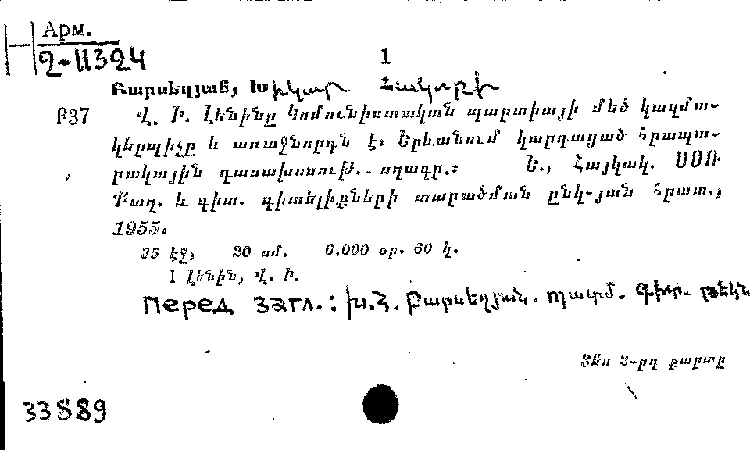 Арм.
2-11324
1
Բարսեղյան, Խիկար Հակոբի
Բ37 Վ. Ի. Լենինը Կոմունիստական պարտիայի մեծ կազմա-
կերպիչը և առաջնորդն է։ Երևանում կարդացած հրապա-
րակային դասախոսութ. սղագր.։ Ե., Հայկակ. ՍՍՌ
Քաղ. և գիտ. գիտելիքների տարածման ընկ-յան հրատ.,
1955.
35 էջ, 20 սմ. 6.000 օր. 60 կ.
I Լենին, Վ. Ի.
Перед загл.: Խ. Հ. Բարսեղյան. պատմ. գիտ. թեկն
Տես 2-րդ քարտը
33889